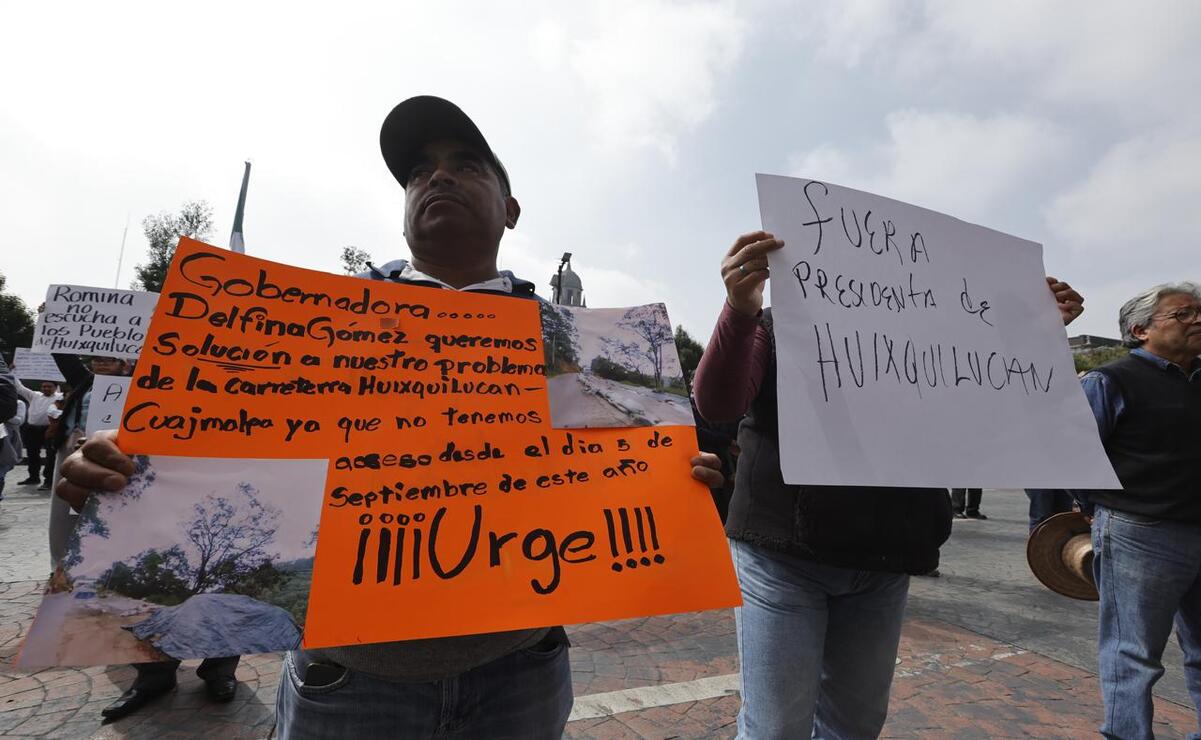 Romina
no
escucha a
los Pueblos
de Huixquilucan
Gobernadora.....
Delfina Gómez queremos
Solución a nuestro problema
de la carreterra Huixquilucan-
Cuajmalpa ya que no tenemos
acceso desde el dia 5 de
Septiembre de este año
¡¡¡¡Urge!!!!!
FUERA
PRESIDENTA de
HUIXQUILUCAN